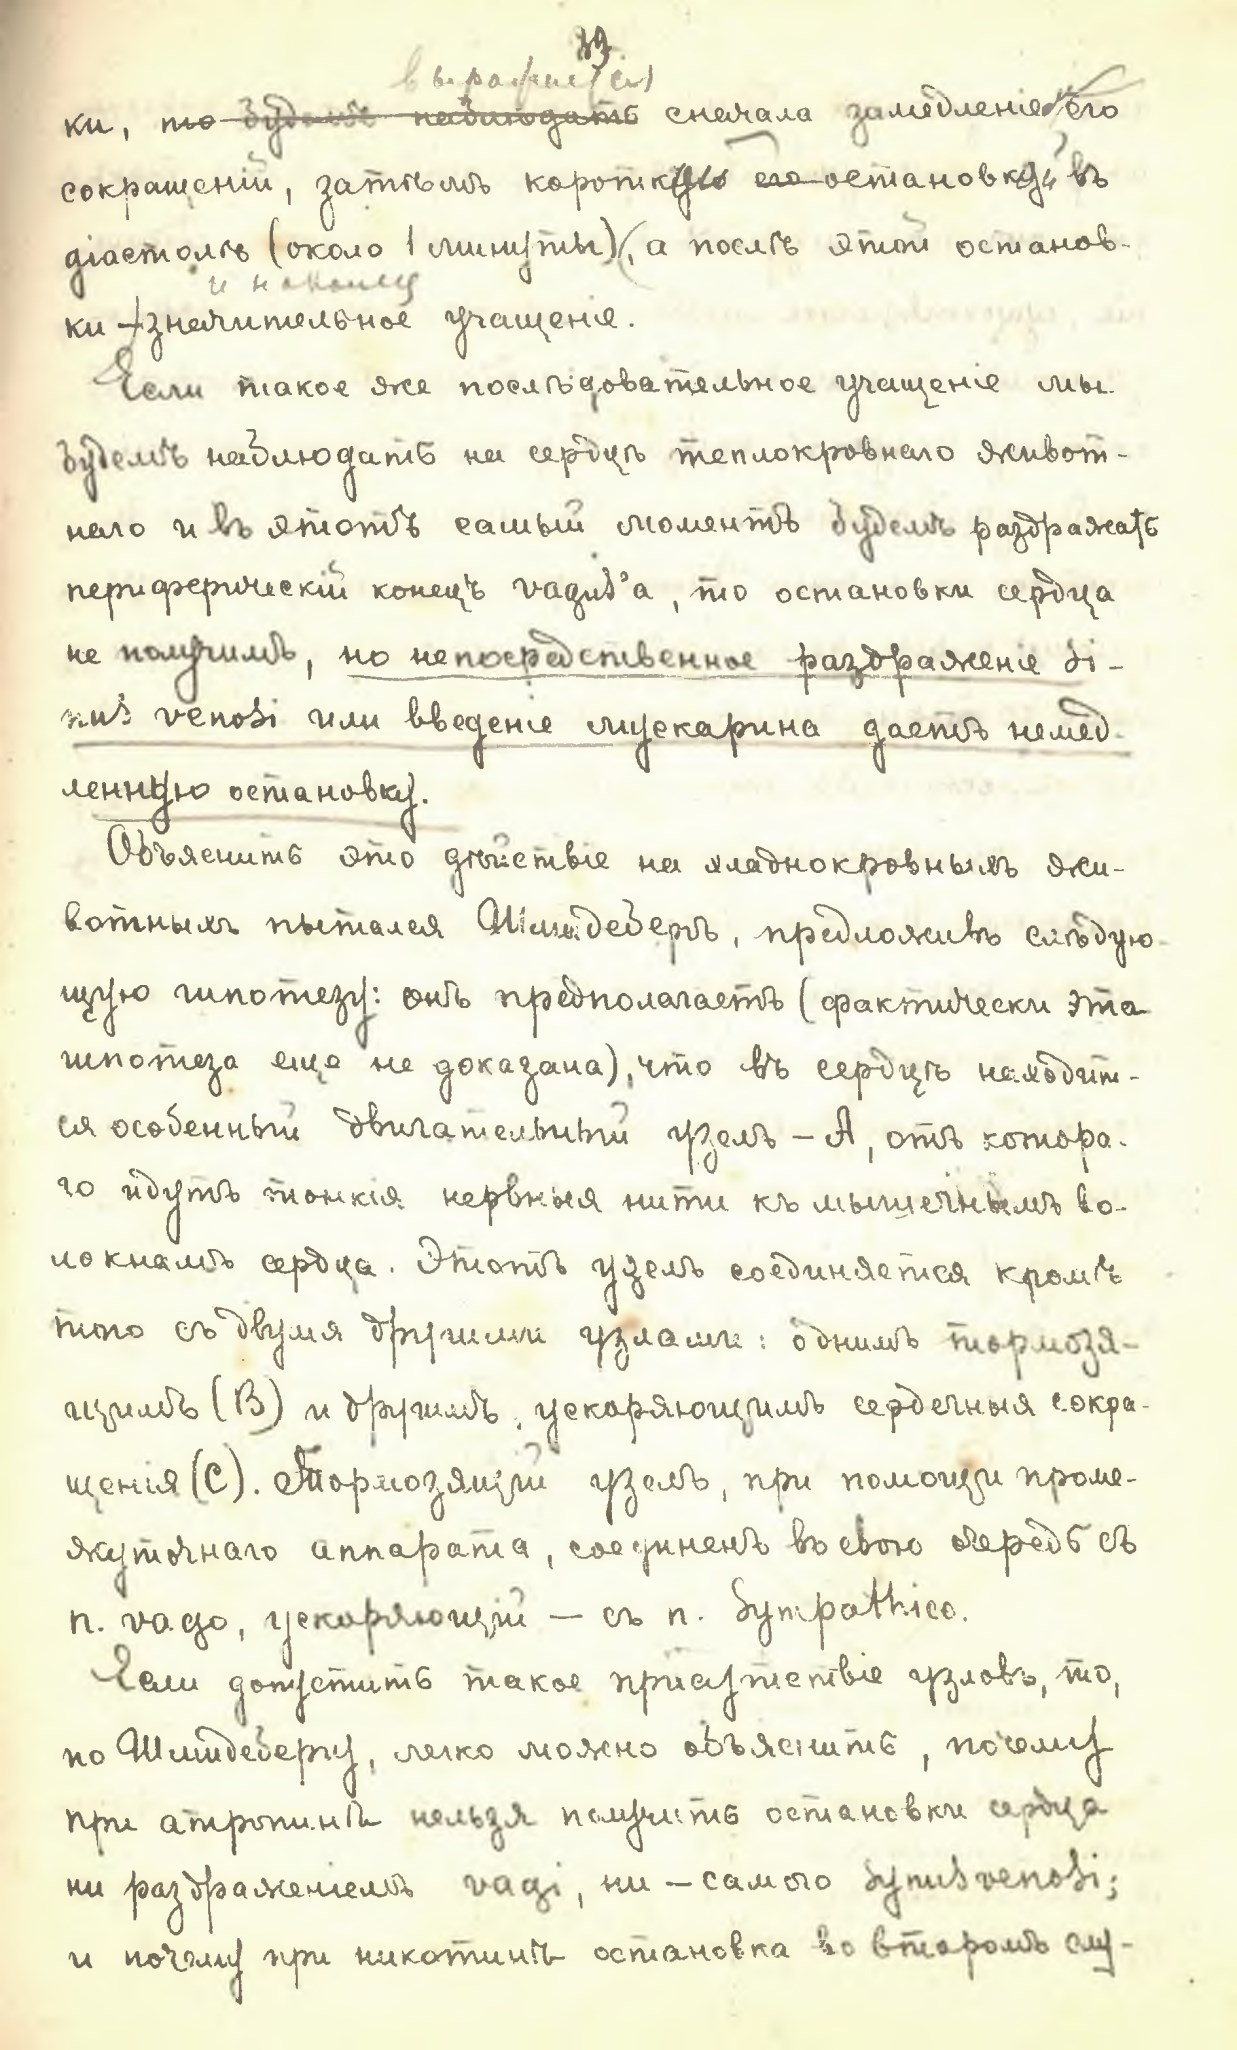 39
выразится
ки, то будемъ наблюдать сначала замедленіе его
сокращеній, затѣмъ короткую его остановку въ
діастолѣ (около 1 минуты), а послѣ этой останов-
и наконец
ки — значительное учащеніе.
Если такое же послѣдовательное учащеніе мы
будемъ наблюдать на сердцѣ теплокровнаго живот-
наго и въ этотъ самый моментъ будемъ раздражать
периферическій конецъ vagus'а, то остановки сердца
не получимъ, но непосредственное раздраженіе si-
nus venosi или введеніе мускарина даетъ немед-
ленную остановку.
Объяснить это дѣйствіе на хладнокровныхъ жи-
вотныхъ пытался Шмидебергъ, предложивъ слѣдую-
щую гипотезу: онъ предполагаетъ (фактически эта
гипотеза еще не доказана), что въ сердцѣ находит-
ся особенный двигательный узелъ — А, отъ котора-
го идутъ тонкія нервныя нити къ мышечнымъ во-
локнамъ сердца. Этотъ узелъ соединяется кромѣ
того съ двумя другими узлами: однимъ тормозя-
щимъ (В) и другимъ, ускоряющимъ сердечныя сокра-
щенія (С). Тормозящій узелъ, при помощи проме-
жуточнаго аппарата, соединенъ въ свою очередь съ
n. vago, ускоряющій — съ n. Sympathico.
Если допустить такое присутствіе узловъ, то,
по Шмидебергу, легко можно объяснить, почему
при атропинѣ нельзя получить остановки сердца
ни раздраженіемъ vagi, ни — самого Synus venosi;
и почему при никотинѣ остановка во второмъ слу-